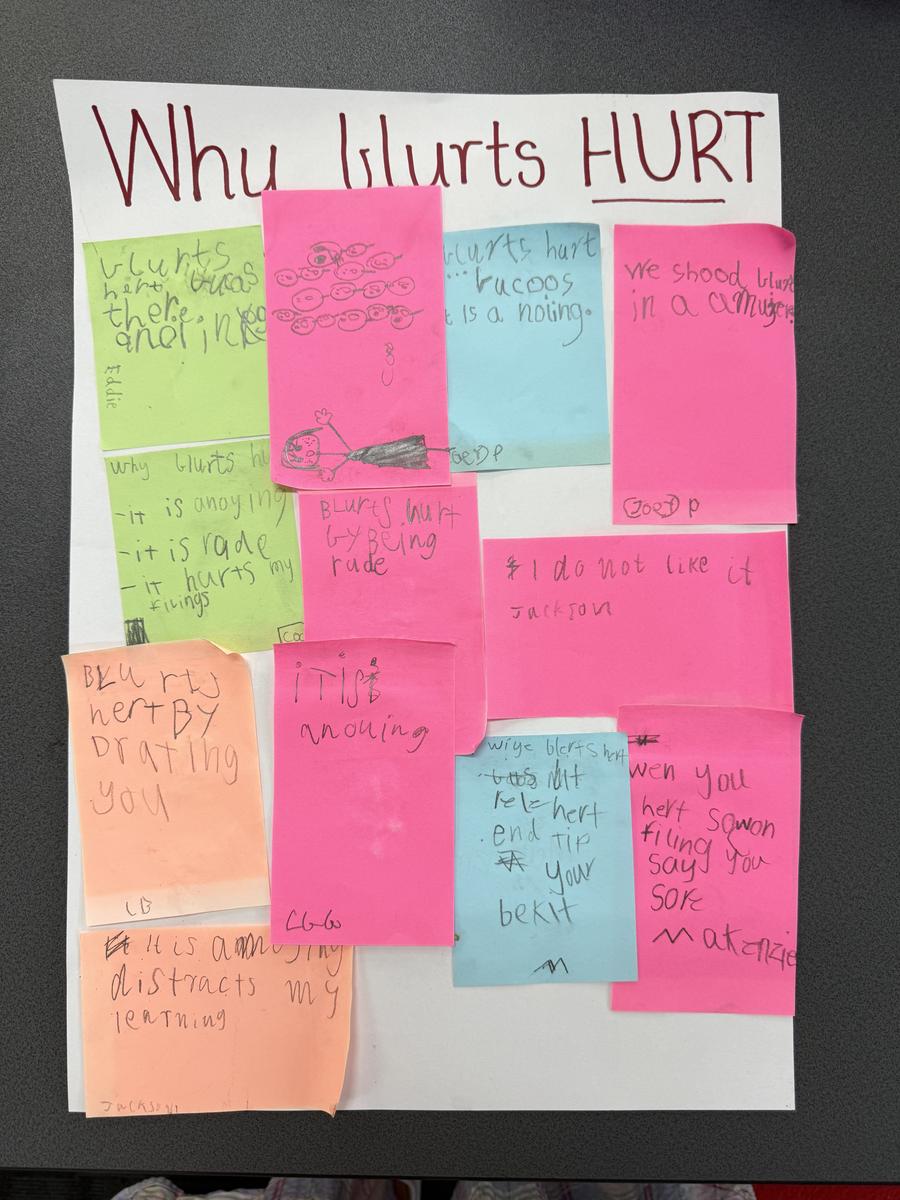 Why blurts HURT
blurts
hert. bucos
there. you
anoi in
Eddie
blurts hurt
... bucoos
t is a noiing.
JoeDP
we shood blurt
in a
JoeJ P
why blurts hu
-it is anoying
-it is rade
- it hurts my
filings
COC
BLurts hurt
by Being
rude
I do not like it
Jackson
BLurts
hert BY
Drating
you
LB
iT is
anouing
LGG
wiye blerts hert
hit
rele hert
end tip
your
bekit
M
wen you
hert sawon
filing
say you
sore
Makenzie
it is annoying
distracts my
learning
Jackson